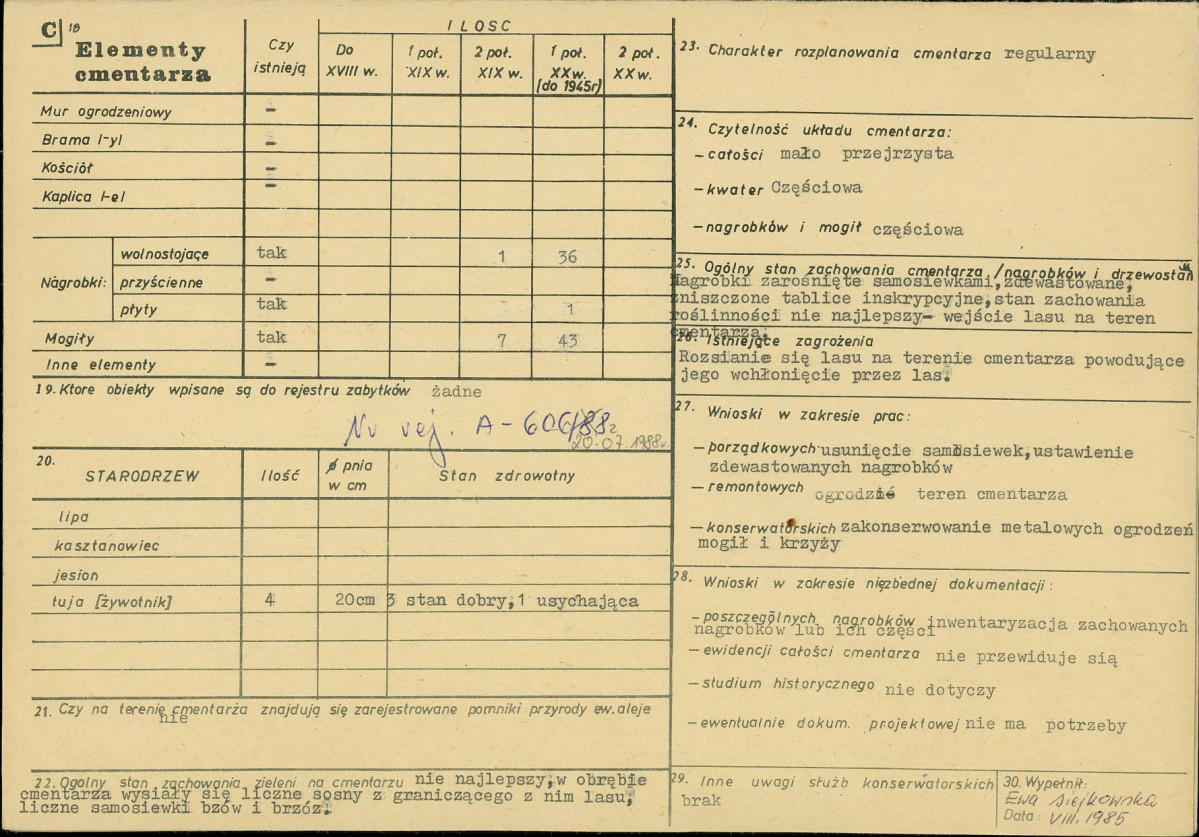 C 18
Elementy
cmentarza
Czy
istnieją
ILOSC
Do
XVIII w.
1 poł.
XIX w.
2 poł.
XIX w.
1 poł.
XX w.
(do 1945r)
2 poł.
XX w.
Mur ogrodzeniowy -
Brama /-y/ -
Kościół -
Kaplica /-e/ -
Nagrobki: wolnostojące tak 1 36
przyścienne -
płyty tak 1
Mogiły tak 7 43
Inne elementy -
19. Ktore obiekty wpisane są do rejestru zabytków żadne
Nr rej. A - 606/88
20.07.1988r.
20.
STARODRZEW Ilość ø pnia
w cm Stan zdrowotny
lipa
kasztanowiec
jesion
tuja [żywotnik] 4 20cm 3 stan dobry, 1 usychająca
21. Czy na terenie cmentarza znajdują się zarejestrowane pomniki przyrody ew. aleje
nie
22. Ogolny stan zachowania zieleni na cmentarzu nie najlepszy, w obrębie
cmentarza wysiały się liczne sosny z graniczącego z nim lasu,
liczne samosiewki bzów i brzóz.
23. Charakter rozplanowania cmentarza regularny
24. Czytelność układu cmentarza:
- całości mało przejrzysta
- kwater Częściowa
- nagrobków i mogił częściowa
25. Ogólny stan zachowania cmentarza /nagrobków i drzewostan
Nagrobki zarośnięte samosiewkami, zdewastowane,
zniszczone tablice inskrypcyjne, stan zachowania
roślinności nie najlepszy- wejście lasu na teren
cmentarza.
26. Istniejące zagrożenia
Rozsianie się lasu na terenie cmentarza powodujące
jego wchłonięcie przez las.
27. Wnioski w zakresie prac:
- porządkowych usunięcie samosiewek, ustawienie
zdewastowanych nagrobków
- remontowych ogrodzić teren cmentarza
- konserwatorskich zakonserwowanie metalowych ogrodzeń
mogił i krzyży
28. Wnioski w zakresie niezbednej dokumentacji:
- poszczególnych nagrobków inwentaryzacja zachowanych
nagrobków lub ich części
- ewidencji całości cmentarza nie przewiduje sią
- studium historycznego nie dotyczy
- ewentualnie dokum. projektowej nie ma potrzeby
29. Inne uwagi służb konserwatorskich
brak
30. Wypełnił:
Ewa Siejkowska
Data: VIII. 1985